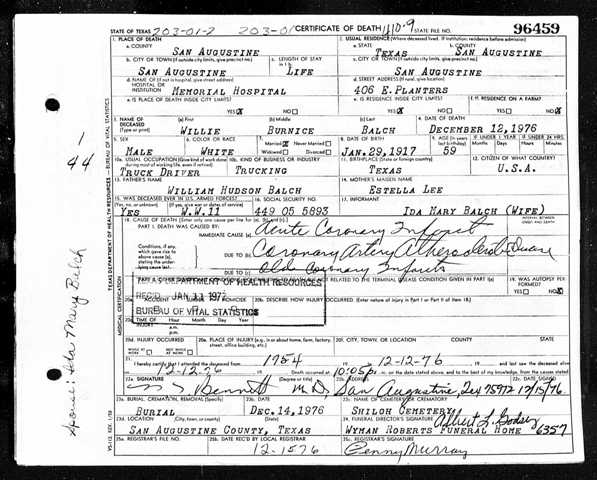 STATE OF TEXAS 203-01-2 203-01 CERTIFICATE OF DEATH 1109 STATE FILE NO. 96459
1. PLACE OF DEATH 2. USUAL RESIDENCE (Where deceased lived. If institution: residence before admission)
a. COUNTY SAN AUGUSTINE a. STATE TEXAS b. COUNTY SAN AUGUSTINE
b. CITY OR TOWN (If outside city limits, give precinct no.) c. LENGTH OF STAY in 1 b. c. CITY OR TOWN (If outside city limits, give precinct no.)
SAN AUGUSTINE LIFE SAN AUGUSTINE
d. NAME OF (If not in hospital, give street address) HOSPITAL OR INSTITUTION MEMORIAL HOSPITAL d. STREET ADDRESS (If rural, give location) 406 E. PLANTERS
e. IS PLACE OF DEATH INSIDE CITY LIMITS? YES X NO e. IS RESIDENCE INSIDE CITY LIMITS? YES X NO f. IS RESIDENCE ON A FARM? YES NO X
3. NAME OF DECEASED (Type or print) (a) First (b) Middle (c) Last 4. DATE OF DEATH
WILLIE BURNICE BALCH DECEMBER 12,1976
5. SEX 6. COLOR OR RACE 7. Married X Never Married Widowed Divorced 8. DATE OF BIRTH 9. AGE (In years last birthday) IF UNDER 1 YEAR Months Days IF UNDER 24 HRS. Hours Min.
MALE WHITE JAN.29,1917 59
10a. USUAL OCCUPATION (Give kind of work done during most of working life, even if retired) 10b. KIND OF BUSINESS OR INDUSTRY 11. BIRTHPLACE (State or foreign country) 12. CITIZEN OF WHAT COUNTRY?
TRUCK DRIVER TRUCKING TEXAS U.S.A.
13. FATHER'S NAME 14. MOTHER'S MAIDEN NAME
WILLIAM HUDSON BALCH ESTELLA LEE
15. WAS DECEASED EVER IN U.S. ARMED FORCES? 16. SOCIAL SECURITY NO. 17. INFORMANT
(Yes, no, or unknown) (If yes, give war or dates of service)
YES W.W.11 449 05 5693 IDA MARY BALCH (WIFE)
18. CAUSE OF DEATH (Enter only one cause per line for (a), (b), and (c).) INTERVAL BETWEEN ONSET AND DEATH
PART I. DEATH WAS CAUSED BY:
IMMEDIATE CAUSE (a) Acute Coronary Infarct
Conditions, if any, which gave rise to above cause (a), stating the underlying cause last.
DUE TO (b) Coronary Artery
DUE TO (c) Old Coronary Infarcts
19. WAS AUTOPSY PERFORMED? YES NO X
DEPARTMENT OF HEALTH RESOURCES
REC'D JAN 11 1977
BUREAU OF VITAL STATISTICS
20a. ACCIDENT SUICIDE HOMICIDE 20b. DESCRIBE HOW INJURY OCCURRED. (Enter nature of injury in Part I or Part II of item 18.)
20c. TIME OF INJURY Hour Month Day Year a.m. p.m.
20d. INJURY OCCURRED WHILE AT WORK NOT WHILE AT WORK 20e. PLACE OF INJURY (e.g., in or about home, farm, factory, street, office building, etc.) 20f. CITY, TOWN, OR LOCATION COUNTY STATE
21. I hereby certify that I attended the deceased from 1954 19 to 12-12-76 19 and last saw the deceased alive
on 12-12-76 19 Death occurred at 10:05 p m. on the date stated above, and to the best of my knowledge, from the causes stated.
22a. SIGNATURE (Degree or title) 22b. ADDRESS 22c. DATE SIGNED
Bennett M.D. San Augustine, Tex 75972 12/15/76
23a. BURIAL, CREMATION, REMOVAL (Specify) 23b. DATE 23c. NAME OF CEMETERY OR CREMATORY
BURIAL DEC.14,1976 SHILOH CEMETERY
23d. LOCATION (City, town, or county) (State) 24. FUNERAL DIRECTOR'S SIGNATURE
SAN AUGUSTINE COUNTY, TEXAS WYMAN ROBERTS FUNERAL HOME Albert L. Godsey 6357
25a. REGISTRAR'S FILE NO. 25b. DATE REC'D BY LOCAL REGISTRAR 25c. REGISTRAR'S SIGNATURE
12-15-76 Penny Murray
TEXAS DEPARTMENT OF HEALTH RESOURCES — BUREAU OF VITAL STATISTICS
MEDICAL CERTIFICATION
1
44
Spouse: Ida Mary Balch